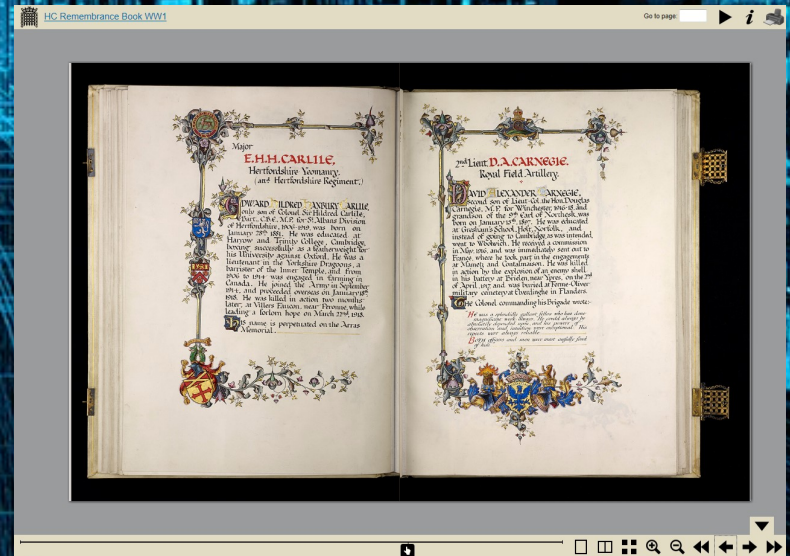 HC Remembrance Book WW1
Go to page:
Major
E.H.H. CARLILE,
Hertfordshire Yeomanry.
(and Hertfordshire Regiment.)
EDWARD HILDRED HANBURY CARLILE,
only son of Colonel Sir Hildred Carlile,
Bart., C.B.E., M.P. for St. Albans Division
of Hertfordshire, 1906-1919, was born on
January 28th 1881. He was educated at
Harrow and Trinity College, Cambridge,
boxing successfully as a featherweight for
his University against Oxford. He was a
lieutenant in the Yorkshire Dragoons, a
barrister of the Inner Temple, and from
1906 to 1914 was engaged in farming in
Canada. He joined the Army in September
1914, and proceeded overseas on January
1918. He was killed in action two months
later, at Villers Faucon, near Peronne, while
leading a forlorn hope on March 22nd, 1918.
His name is perpetuated on the Arras
Memorial.
2nd Lieut. D.A. CARNEGIE,
Royal Field Artillery.
DAVID ALEXANDER CARNEGIE,
second son of Lieut-Col. the Hon. Douglas
Carnegie, M.P. for Winchester, 1916-18, and
grandson of the 9th Earl of Northesk, was
born on January 1897. He was educated
at Gresham's School, Holt, Norfolk, and
instead of going to Cambridge, as was intended,
went to Woolwich. He received a commission
in May, 1916, and was immediately sent out to
France, where he took part in the engagements
at Mametz and Contalmaison. He was killed
in action by the explosion of an enemy shell
in his battery at Brielen, near Ypres, on the 2nd
of April, 1917, and was buried at Ferme-Olivier
military cemetery at Elverdinghe in Flanders.
The Colonel, commanding his Brigade wrote:-
He was a splendidly gallant fellow who has done
magnificent work always. He could always be
absolutely depended upon, and his powers of
observation and intuition were exceptional. His
reports were always reliable.
Both officers and men were most awfully fond
of him.